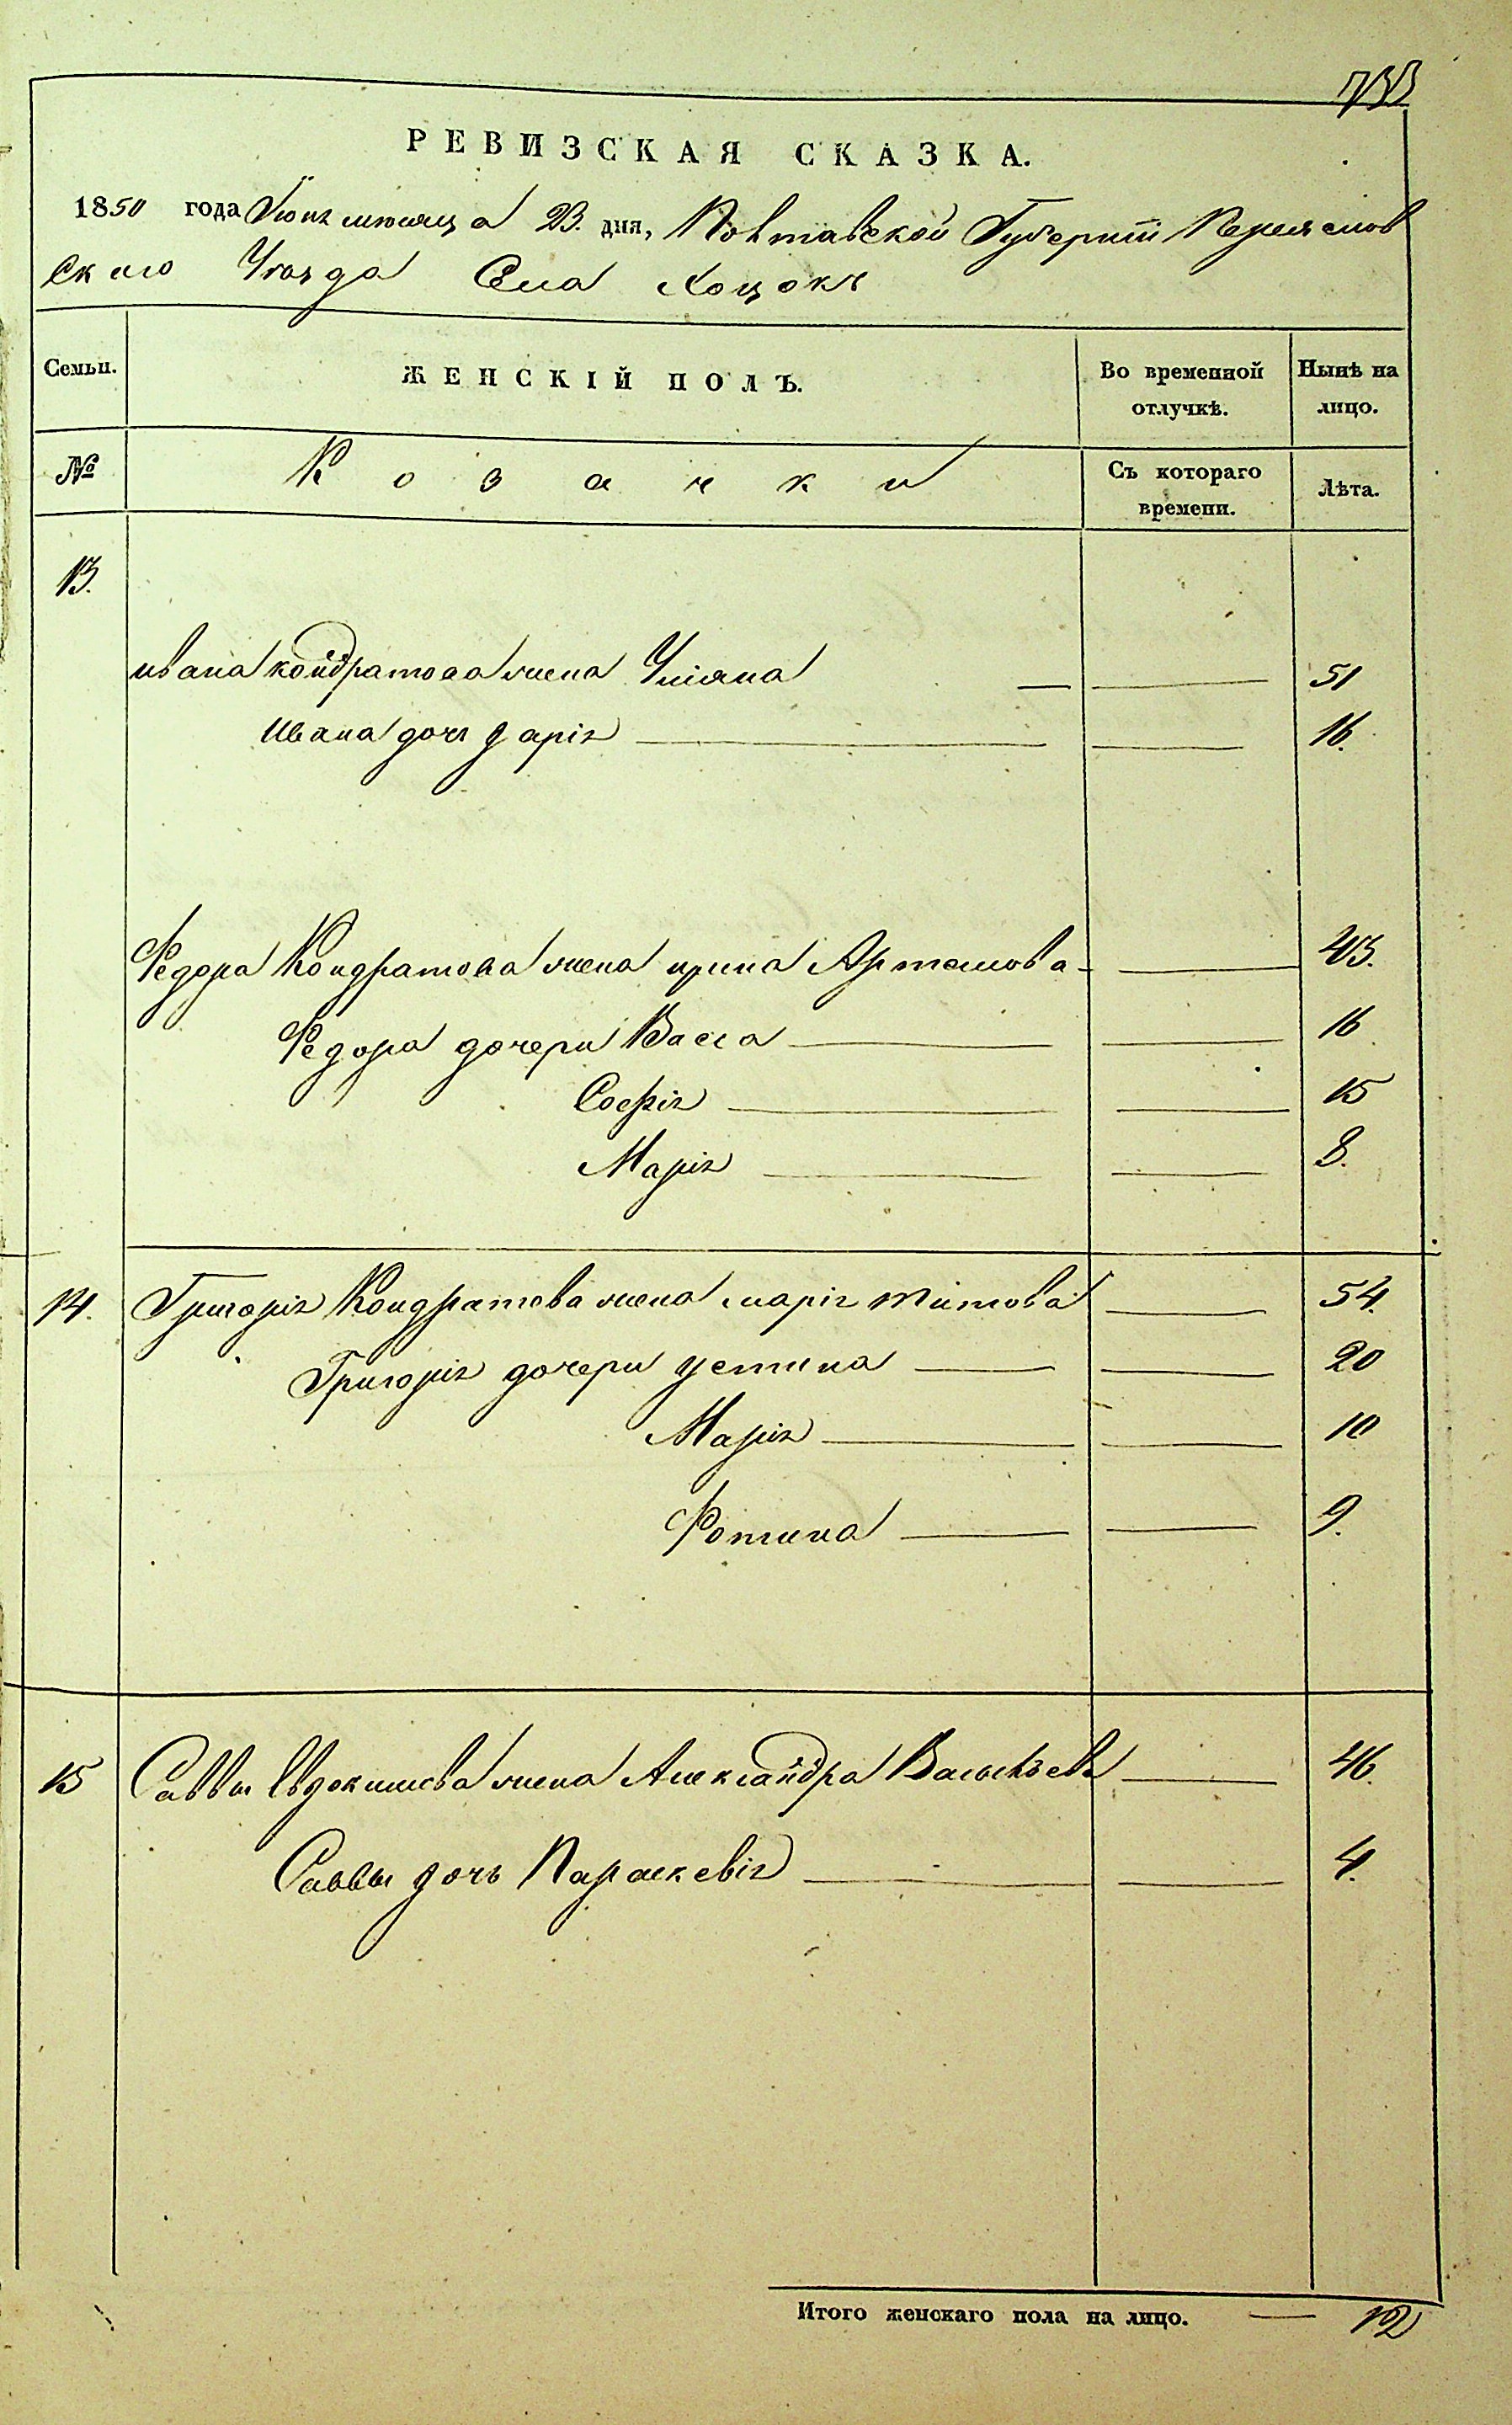 733
РЕВИЗСКАЯ СКАЗКА.
1850 года Июня месяца 23. дня, Полтавской Губернии Переяслов
Скаго Уезда Села Хоцокъ
Семьи.
ЖЕНСКІЙ ПОЛЪ.
Во временной отлучкѣ.
Нынѣ на лицо.
№
Козачки
Съ котораго времени.
Лѣта.
13.
ивана кондратова жена Уліяна — — 51
Ивана доч дарія — — 16.
Федора Кондратова жена ирина Артемова — — 43.
Федора дочери Васса — — 16
Софія — — 15
Марія — — 8.
14. Григорія Кондратова жена марія титова — 54.
Григорія дочери устина — — 20
Марія — — 10
Фотина — — 9.
15 Саввы Евдокимова жена Александра Васильева — 46.
Саввы дочь Параскевія — — 4.
Итого женскаго пола на лицо. — 12